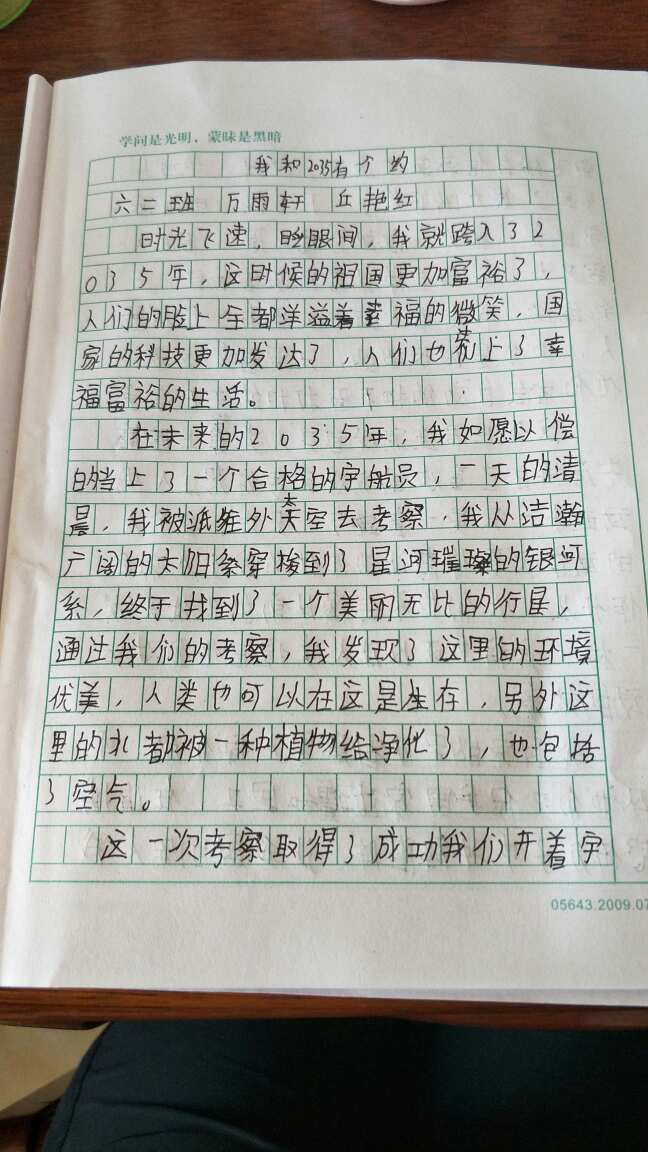 学问是光明，蒙昧是黑暗
我和2035有个约
六二班 万雨轩 丘艳红
时光飞速，眨眼间，我就跨入了2
035年，这时候的祖国更加富裕了，
人们的脸上全都洋溢着幸福的微笑，国
家的科技更加发达了，人们也若上了幸
福富裕的生活。
在未来的2035年，我如愿以偿
的当上了一个合格的宇航员，一天的清
晨，我被派维外太空去考察，我从洁瀚
广阔的太阳系穿梭到了星河璀璨的银河
系，终于找到了一个美丽无比的行星，
通过我们的考察，我发现了这里的环境
优美，人类也可以在这是生存，另外这
里的水都被一种植物给净化了，也包括
了空气。
这一次考察取得了成功我们开着宇
05643.2009.07